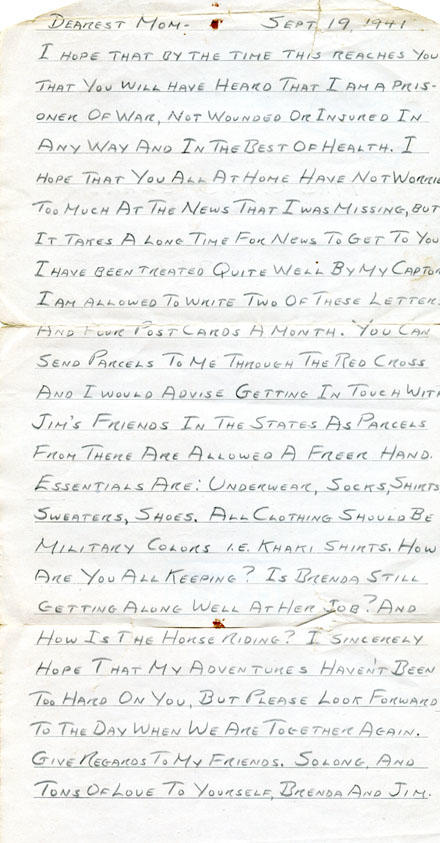 Dearest Mom- Sept 19, 1941
I hope that by the time this reaches you
that you will have heard that I am a pris-
oner of war, not wounded or injured in
any way and in the best of health. I
hope that you all at home have not worrie
too much at the news that I was missing, but
it takes a long time for news to get to you
I have been treated quite well by my captor
I am allowed to write two of these letter
and four post cards a month. You can
send parcels to me through the Red Cross
and I would advise getting in touch with
Jim's friends in the States as parcels
from there are allowed a freer hand.
Essentials are: underwear, socks, shirts
sweaters, shoes. All clothing should be
military colors i.e. khaki shirts. How
are you all keeping? Is Brenda still
getting along well at her job? And
how is the horse riding? I sincerely
hope that my adventures haven't been
too hard on you, but please look forward
to the day when we are together again.
Give regards to my friends. Solong, and
tons of love to yourself, Brenda and Jim.